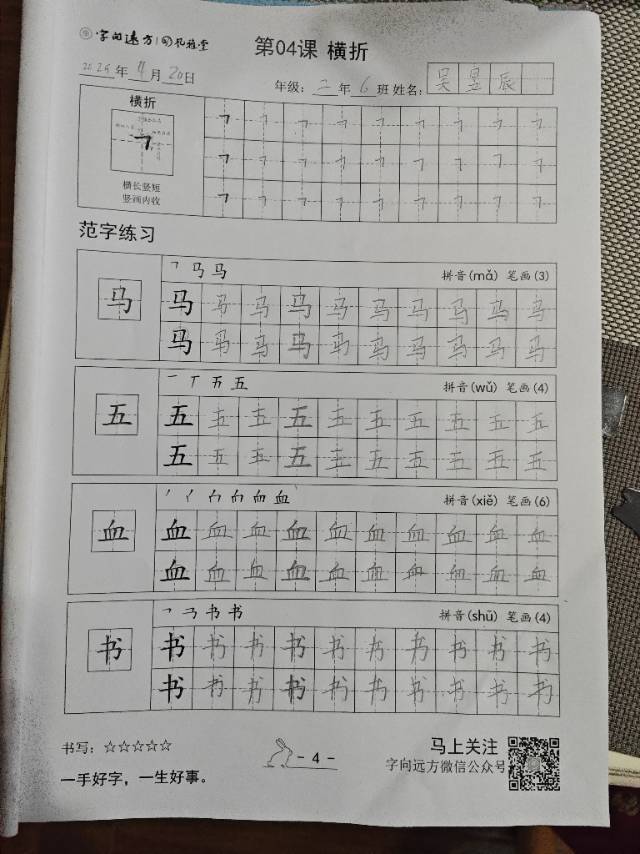 字向远方
第04课 横折
年 月 20日
年级：二年6班 姓名：吴昱辰
横折
横长竖短
竖画内收
范字练习
马
马 马
拼音(mǎ) 笔画(3)
马 马 马 马 马 马 马 马 马 马
马 马 马 马 马 马 马 马 马 马
五
拼音(wǔ) 笔画(4)
五 五 五 五 五 五 五 五 五 五
五 五 五 五 五 五 五 五 五 五
血
拼音(xiě) 笔画(6)
血 血 血 血 血 血 血 血 血 血
血 血 血 血 血 血 血 血 血 血
书
拼音(shū) 笔画(4)
书 书 书 书 书 书 书 书 书 书
书 书 书 书 书 书 书 书 书 书
书写：☆☆☆☆☆
- 4 -
马上关注
字向远方微信公众号
一手好字，一生好事。